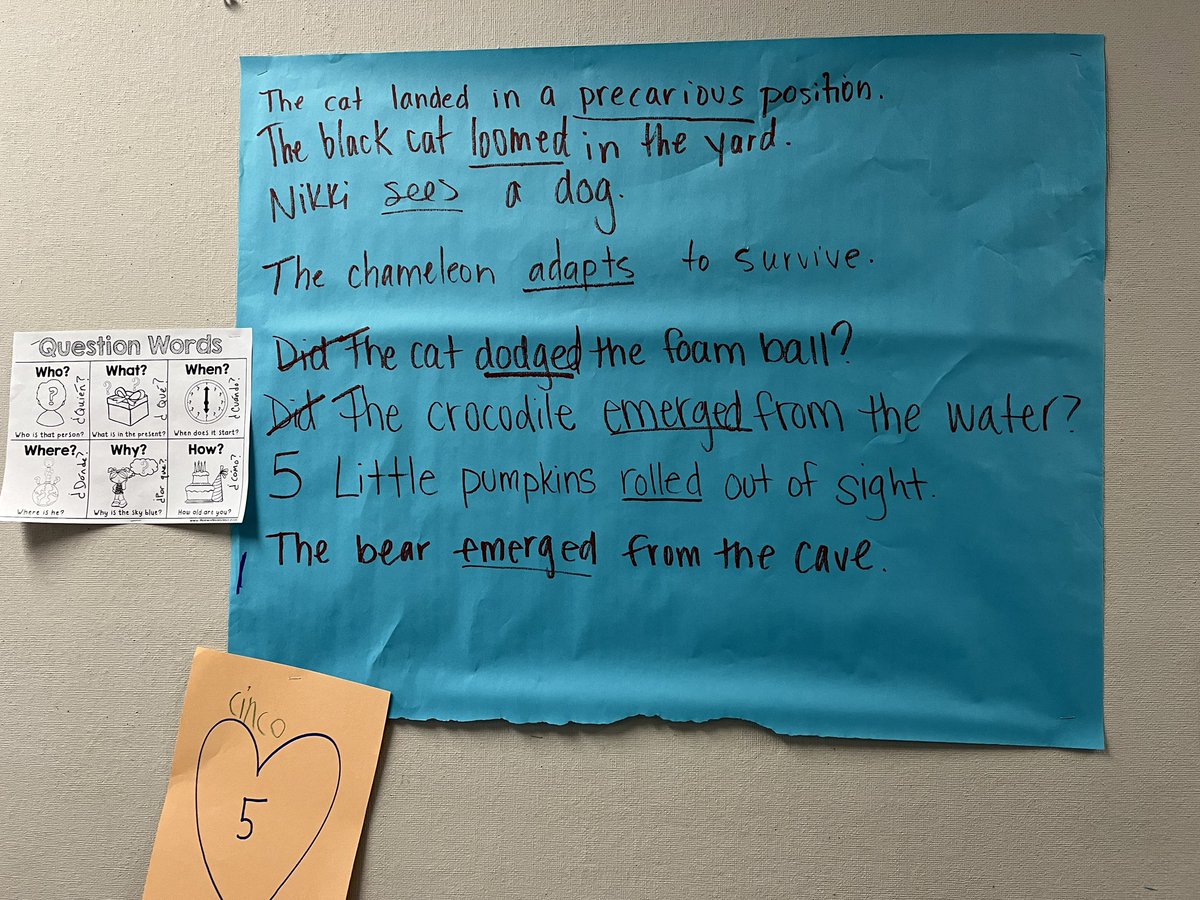 The cat landed in a precarious position.
The black cat loomed in the yard.
Nikki sees a dog.
The chameleon adapts to survive.
Did The cat dodged the foam ball?
Did The crocodile emerged from the water?
5 Little pumpkins rolled out of sight.
The bear emerged from the cave.
Question Words
Who? What? When?
¿Quién? ¿Qué? ¿Cuándo?
Who is that person? What is in the present? When does it start?
Where? Why? How?
¿Dónde? ¿Por qué? ¿Cómo?
Where is he? Why is the sky blue? How old are you?
cinco
5